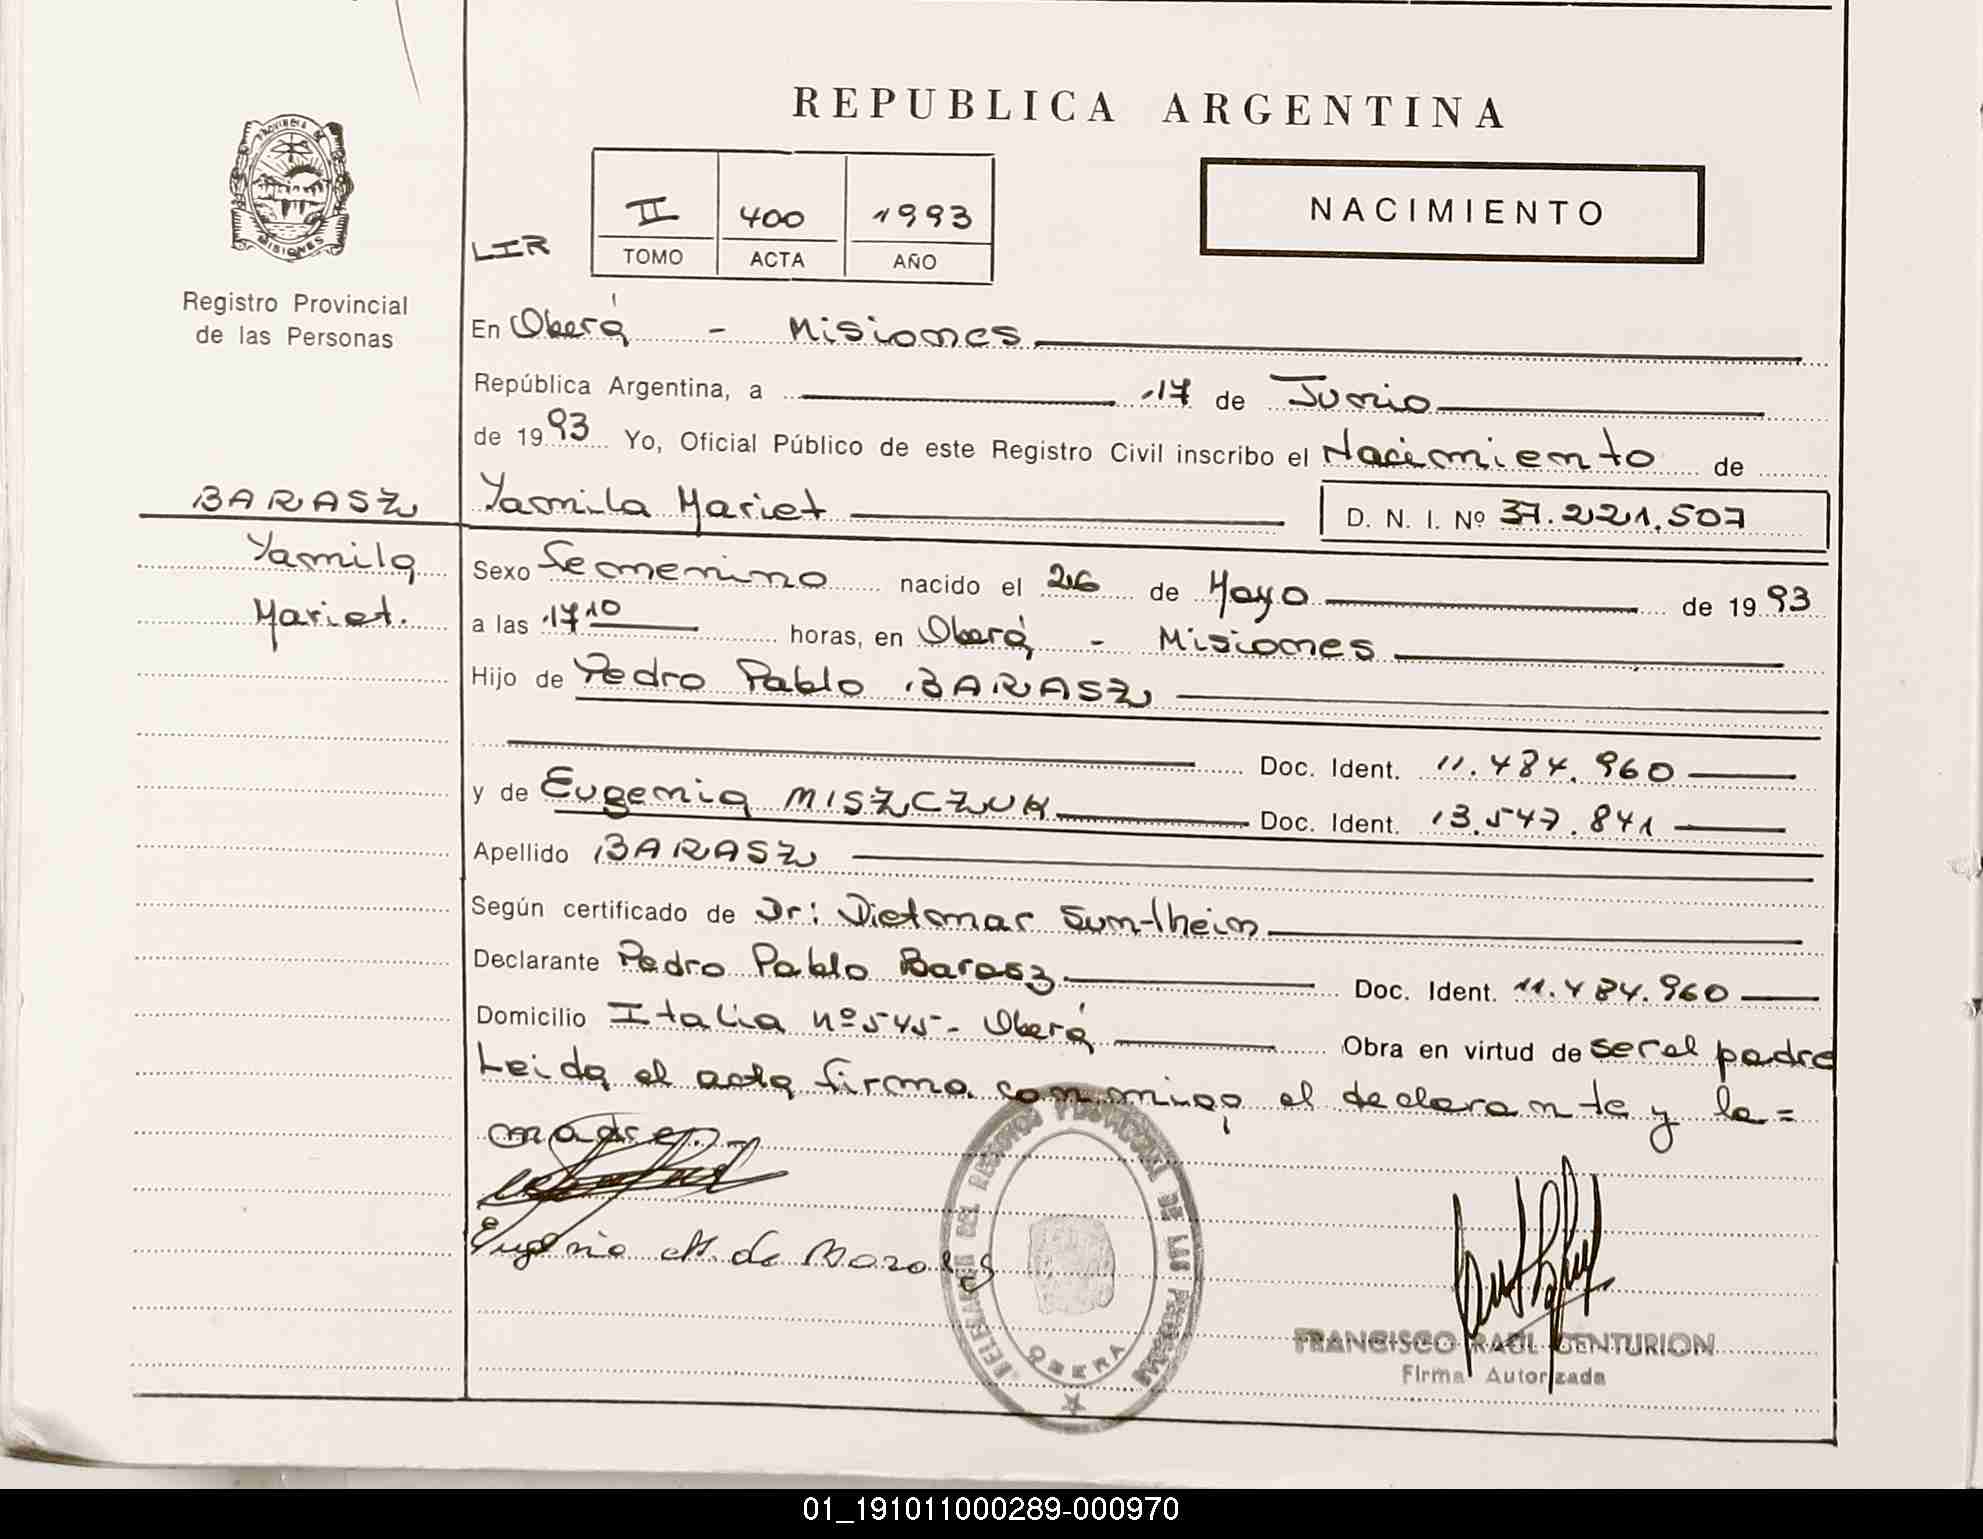 REPUBLICA ARGENTINA
PROVINCIA DE
MISIONES
Registro Provincial
de las Personas
LIR
II 400 1993
TOMO ACTA AÑO
NACIMIENTO
En Oberá - Misiones
República Argentina, a 17 de Junio
de 1993 Yo, Oficial Público de este Registro Civil inscribo el Nacimiento de
BARASZ
Yamila
Mariet.
Yamila Mariet D. N. I. Nº 37.221.507
Sexo Femenino nacido el 26 de Mayo de 1993
a las 17 10 horas, en Oberá - Misiones
Hijo de Pedro Pablo BARASZ
Doc. Ident. 11.484.960
y de Eugenia MISZCZUK Doc. Ident. 13.547.841
Apellido BARASZ
Según certificado de Dr: Dietmar
Declarante Pedro Pablo Barasz Doc. Ident. 11.484.960
Domicilio Italia nº 545- Oberá Obra en virtud de ser el padre
Leida el acta firma conmigo el declarante y la=
madre.-
Eugenia M. de
DEL REGISTRO PROVINCIAL DE LAS PERSONAS
OBERA
FRANCISCO RAUL CENTURION
Firma Autorizada
01_191011000289-000970